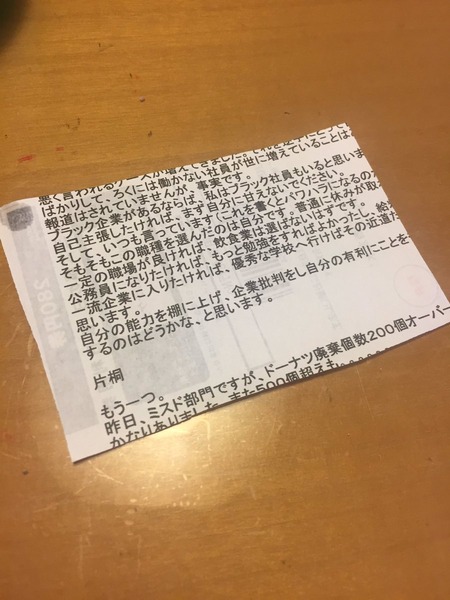 悪く言われるケースが増えてきました。
ばかりして、ろくには働かない社員が世に増えていることは
報道はされていませんが、事実です。
ブラック企業があるならば、私はブラック社員もいると思いま
自己主張したければ、まず自分に甘えないでください。
そして、いつも言っています(これを書くとパワハラになるのか
そもそもこの職種を選んだのは自分です。普通に休みが取
一定の職場が良ければ、飲食業は選ばないはずです。
公務員になりたければ、もっと勉強をすればよかったし、給
一流企業に入りたければ、優秀な学校へ行けばその近道だ
思います。
自分の能力を棚に上げ、企業批判をし自分の有利にことを
するのはどうかな、と思います。
片桐
もう一つ。
昨日、ミスド部門ですが、ドーナツ廃棄個数200個オーバー
かなりありました。また500個超えも